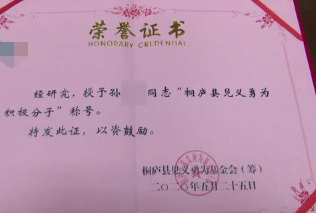 荣誉证书
HONORARY CREDENTIAL
经研究，授予孙 同志“桐庐县见义勇为
积极分子”称号。
特发此证，以资鼓励。
桐庐县见义勇为基金会（筹）
二〇二〇年五月二十五日